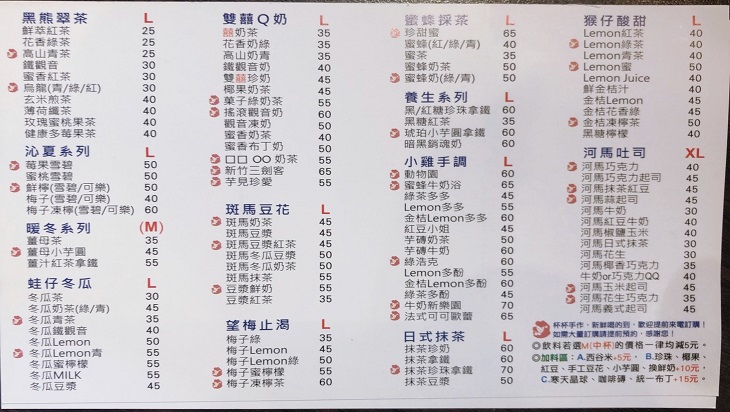 黑熊翠茶 L
鮮萃紅茶 25
花香綠茶 25
高山青茶 25
鐵觀音 30
蜜香紅茶 30
烏龍(青/綠/紅) 30
玄米煎茶 40
薄荷纖茶 40
玫瑰蜜桃果茶 40
健康多莓果茶 40
沁夏系列 L
莓果雪碧 50
蜜桃雪碧 50
鮮檸(雪碧/可樂) 50
梅子(雪碧/可樂) 40
梅子凍檸(雪碧/可樂) 60
暖冬系列 (M)
薑母茶 35
薑母小芋圓 45
薑汁紅茶拿鐵 55
蛙仔冬瓜 L
冬瓜茶 30
冬瓜奶茶(綠/青) 45
冬瓜青茶 35
冬瓜鐵觀音 40
冬瓜Lemon 50
冬瓜Lemon青 55
冬瓜蜜檸檬 55
冬瓜MILK 55
冬瓜豆漿 45
雙囍Q奶 L
囍奶茶 35
花香奶綠 35
高山奶青 35
鐵觀音奶 40
雙囍珍奶 45
椰果奶茶 45
菓子綠奶茶 55
搖滾觀音奶 60
觀音凍奶 50
蜜香奶茶 40
蜜香布丁奶 50
囗囗 OO 奶茶 55
新竹三劍客 65
芋見珍愛 55
斑馬豆花 L
斑馬奶茶 45
斑馬豆漿 45
斑馬豆漿紅茶 45
斑馬冬瓜豆漿 50
斑馬冬瓜奶茶 50
斑馬抹茶 55
豆漿鮮奶 55
豆漿紅茶 35
望梅止渴 L
梅子綠 35
梅子Lemon 45
梅子Lemon綠 50
梅子蜜檸檬 60
梅子凍檸茶 60
蜜蜂採茶 L
珍甜蜜 65
蜜蜂(紅/綠/青) 40
蜜茶 35
蜜蜂奶茶 50
蜜蜂奶(綠/青) 50
養生系列 L
黑/紅糖珍珠拿鐵 60
黑糖紅茶 35
琥珀小芋圓拿鐵 60
暗黑銷魂奶 60
小雞手調 L
動物園 60
蜜蜂牛奶浴 65
綠茶多多 45
Lemon多多 55
金桔Lemon多多 60
紅豆小姐 45
芋磚奶茶 50
芋磚牛奶 60
綠浩克 60
Lemon多酚 55
金桔Lemon多酚 60
綠茶多酚 45
牛奶新樂園 70
法式可可歐蕾 65
日式抹茶 L
抹茶珍奶 60
抹茶拿鐵 60
抹茶珍珠拿鐵 70
抹茶豆漿 50
猴仔酸甜 L
Lemon紅茶 40
Lemon綠茶 40
Lemon青茶 40
Lemon蜜 50
Lemon Juice 40
鮮金桔汁 40
金桔Lemon 45
金桔花香綠 45
金桔凍檸茶 50
黑糖檸檬 40
河馬吐司 XL
河馬巧克力 40
河馬巧克力起司 45
河馬抹茶紅豆 45
河馬蒜起司 45
河馬牛奶 30
河馬紅豆牛奶 40
河馬椒鹽玉米 40
河馬日式抹茶 30
河馬花生 30
河馬椰香巧克力 35
牛奶or巧克力QQ 40
河馬玉米起司 45
河馬花生巧克力 35
河馬義式起司 45
杯杯手作，新鮮喝的到，歡迎提前來電訂購！
如需大量訂購請提前預約，感謝您！
◎飲料若選M(中杯)的價格一律均減5元。
◎加料區：A.西谷米+5元、B.珍珠、椰果、
紅豆、手工豆花、小芋圓、換鮮奶+10元，
C.寒天晶球、咖啡磚、統一布丁+15元。